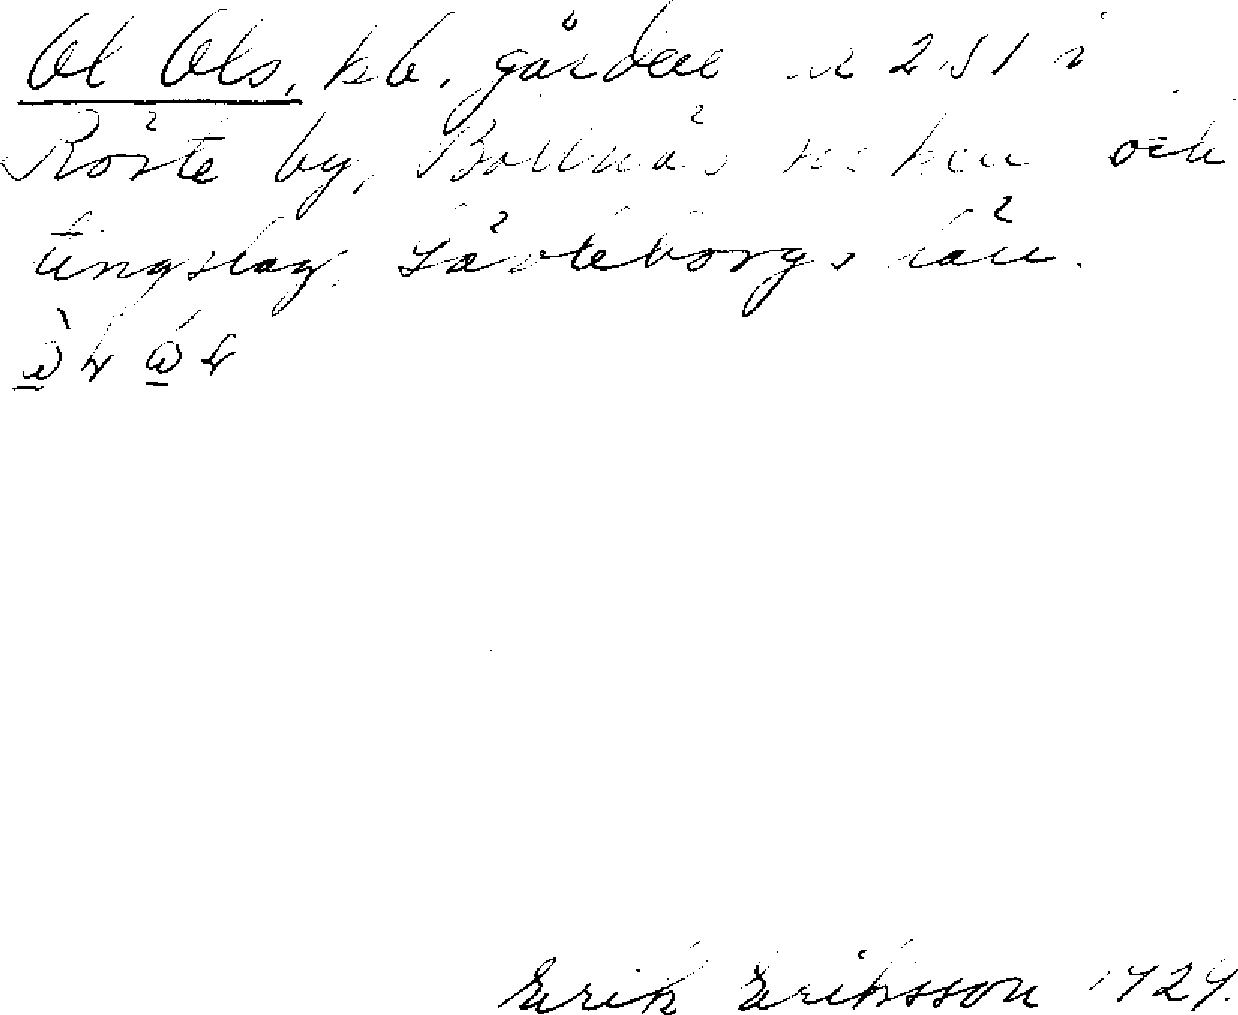 Ol Ols, bb. gården nr 2 51 i
Röste by, Bollnäs socken och
tingslag, Gävleborgs län.
Erik Eriksson 1929.